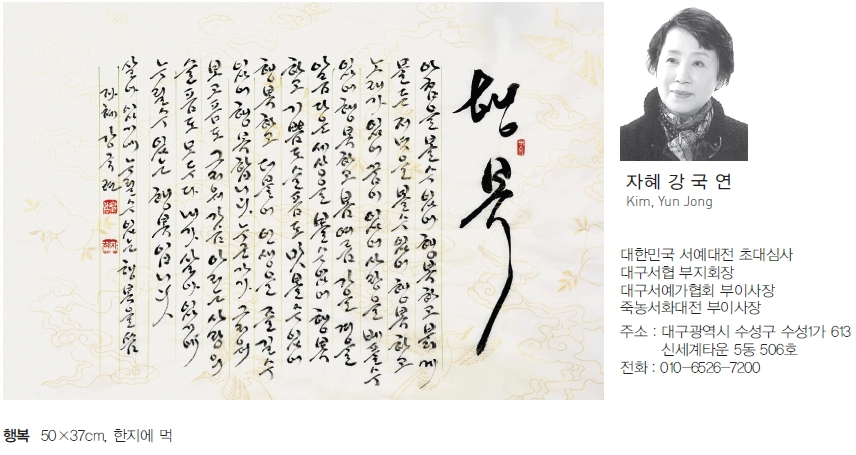 행복
아침을 볼 수 있어 행복하고 붉게
물든 저녁을 볼 수 있어 행복하고
노래가 있어 꿈이 있어 사랑을 베풀 수
있어 행복하고 봄 여름 가을 겨울
아름다운 세상을 볼 수 있어 행복
하고 기쁨도 슬픔도 맛볼 수 있어
행복하고 더불어 인생을 즐길 수
있어 행복합니다 누군가가 그리워
보고픔도 그리워 가슴 아린 사랑의
슬픔도 모두 다 내가 살아 있기에
누릴 수 있는 행복입니다
살아 있기에 누릴 수 있는 행복을 씀
자혜 강국연
자혜 강 국 연
Kim, Yun Jong
대한민국 서예대전 초대심사
대구서협 부지회장
대구서예가협회 부이사장
죽농서화대전 부이사장
주소 : 대구광역시 수성구 수성1가 613
신세계타운 5동 506호
전화 : 010-6526-7200
행복 50×37cm, 한지에 먹